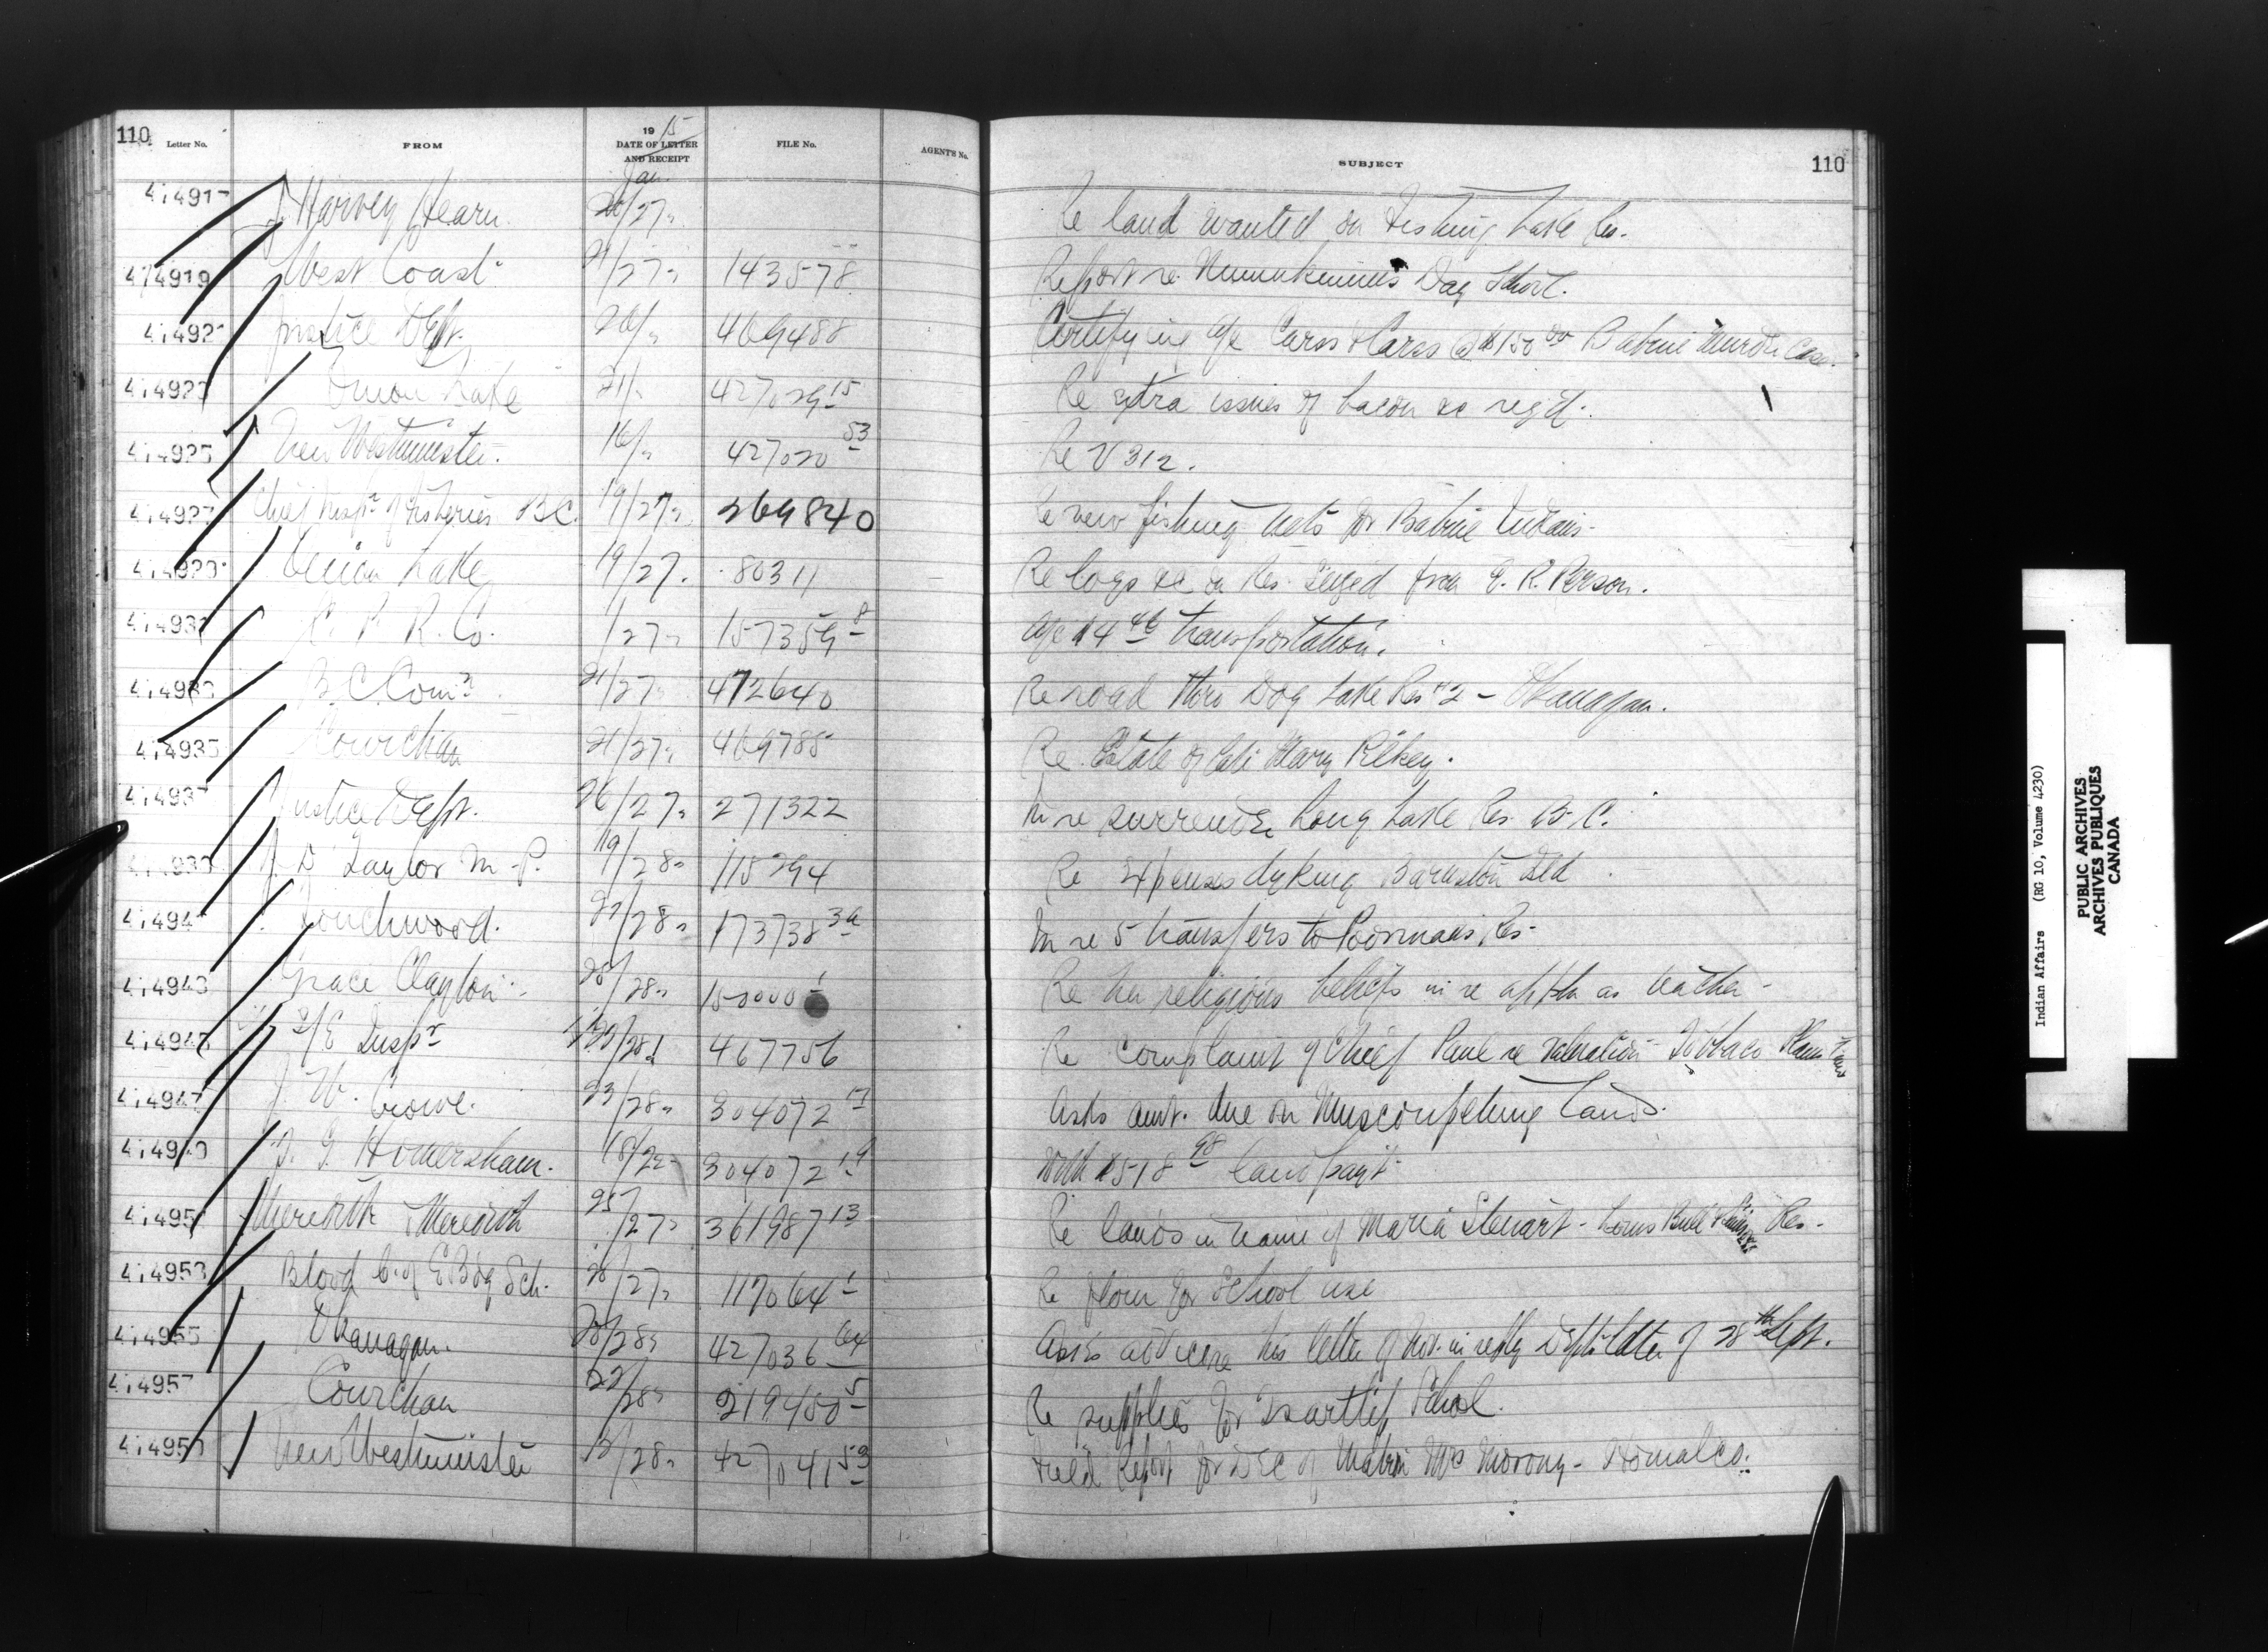 110 Letter No. FROM 1915 DATE OF LETTER AND RECEIPT FILE No. AGENT'S No. SUBJECT 110
Jan
J. Harvey Hearn. 26/27 " Re land wanted on Fishing Lake Res.
414919 West Coast. 21/27 " 143578 Report re Numukamis Day School.
Justice Dept. 26/" 469488 Certifying a/c Carss & Carss @ $150 00 Babine Murder Case.
414923 Onion Lake 21/" 427029 15 Re extra issues of bacon &c reqd.
414925 New Westminster. 16/" 427020 53 Re V 312.
414927 Chief Inspr of Fisheries B.C. 19/27 " 269840 Re new fishing nets for Babine Indians.
Onion Lake 19/27. 80311 Re logs &c on Res. seized from E. R. Person.
C. P. R. Co. /27 " 157359 8 a/c $4 46 transportation.
B.C. Comr. 21/27 " 472640 Re road thro Dog Lake Res #2 - Okanagan.
414935 Cowichan 21/27 " 469788 Re Estate of late Mary Rilkey.
414937 Justice Dept. 26/27 " 271322 In re surrender Long Lake Res. B.C.
J. D. Taylor M.P. 19/28 " 115294 Re expenses dyking Barnston Isld.
Touchwood. 22/28 " 173738 Re 5 transfers to Poormans Res.
414943 Grace Clayton. /28 " Re her religious beliefs in re appln as teacher -
Inspr 467756 Re complaint of Chief Paul re valuation Tobacco Plains
414947 J. W. Crowe. 23/28 " 304072 17 Asks amt. due on Muscowpetung Land.
Homersham. 18/22 304072 19 With $518 98 land payt.
Meredith & Meredith 25/27 " 361987 13 Re lands in name of Maria Stewart - Louis Bull Res -
414953 Blood C. of E. Bdg Sch. 26/27 " 117064 1 Re flour for School use
414955 Okanagan. /28 " 427036 64 Asks advice re his letter of Nov. in reply Depts letter of 28th Sept.
414957 Cowichan 22/28 " 219450 5 Re supplies for Tsartlip School.
New Westminster /28 " 427041 59 Field Report for Dec of Matron Mrs Morony - Homalco.
Indian Affairs (RG 10, Volume 4230)
PUBLIC ARCHIVES
ARCHIVES PUBLIQUES
CANADA